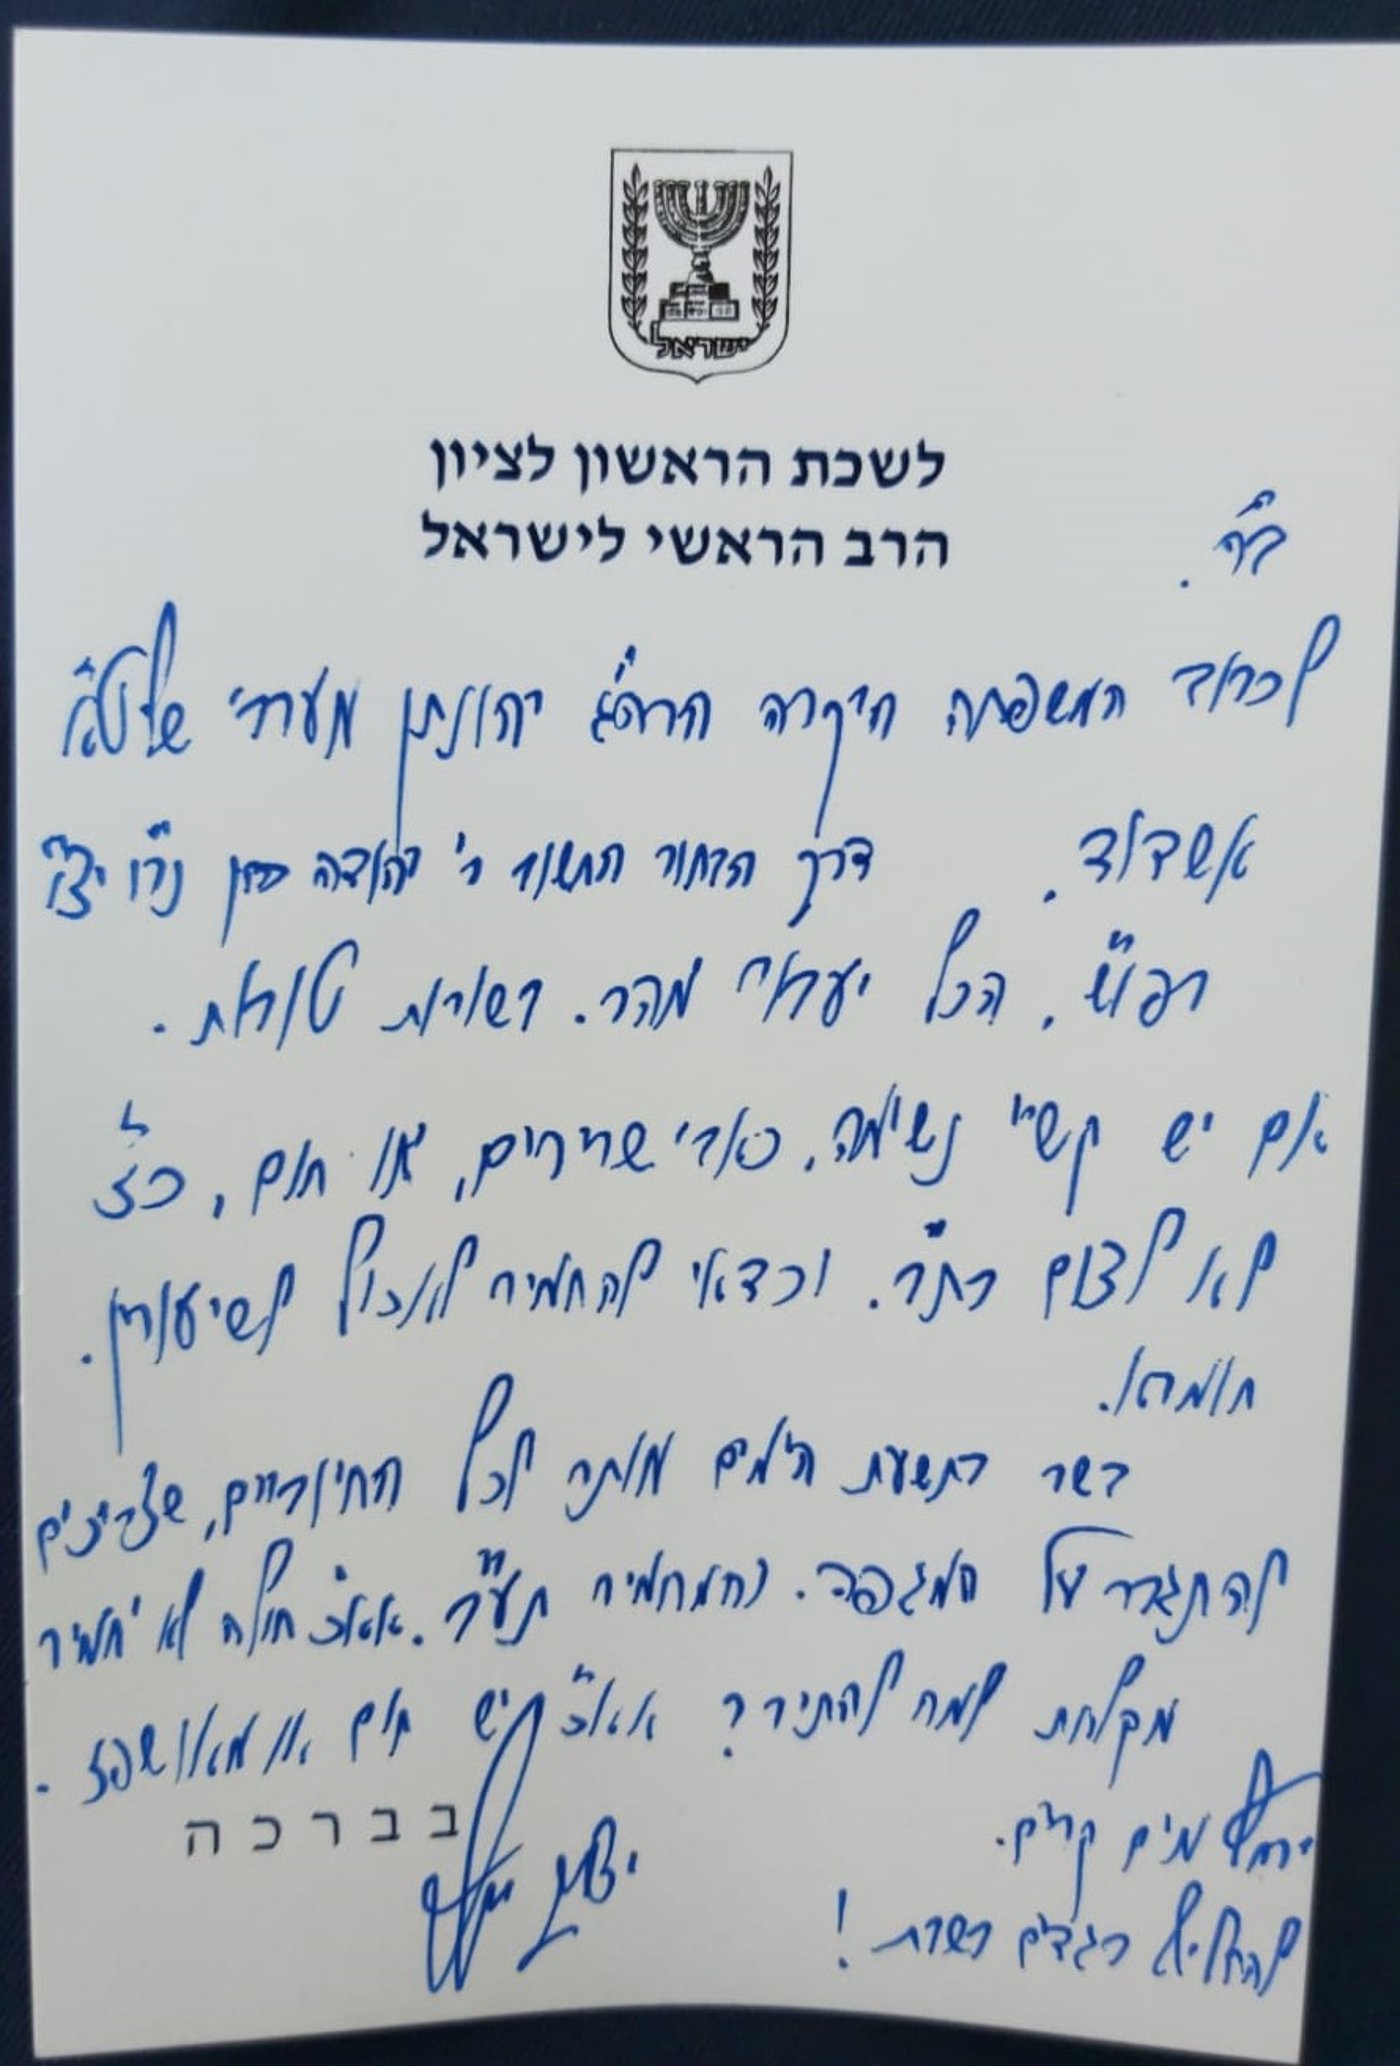 ישראל
לשכת הראשון לציון
הרב הראשי לישראל
ב"ה.
לכבוד המשפחה היקרה הרה"ג יהונתן מערבי שליט"א
אשדוד. דרך הבחור החשוב ר' יהודה כהן נ"ו יצ"ו
רפו"ש. הכל יעבור מהר. בשורות טובות.
אם יש קשיי נשימה, כאבי שרירים, או חום, כ"ז
לא לצום בת"ב. וכדאי להחמיר לאכול לשיעורין.
חומרא.
בשר בתשעת הימים מותר לכל החיוביים, שצריכים
להתגבר על המגפה. והמחמיר תע"ב. אא"כ חולה לא יחמיר
מקלחת למה להתיר? אא"כ יש חום או מאושפז.
ירחץ מים קרים.
להחליף בגדים בשבת!
בברכה
יצחק יוסף